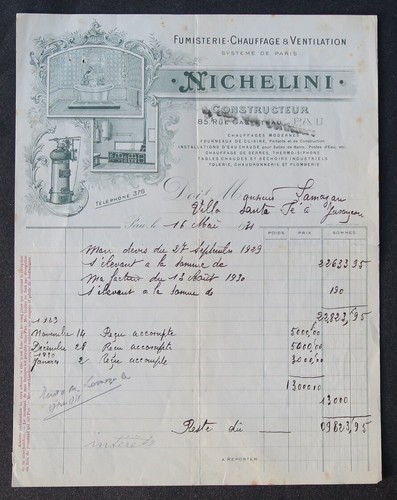 FUMISTERIE-CHAUFFAGE & VENTILATION
SYSTÈME DE PARIS
NICHELINI
CONSTRUCTEUR
PAU
CHAUFFAGES MODERNES
FOURNEAUX DE CUISINE, Portatifs et en Construction
INSTALLATIONS D'EAU CHAUDE pour Salles de Bains, Postes d'Eau, etc.
CHAUFFAGE DE SERRES, THERMO-SIPHONS
TABLES CHAUDES ET SÉCHOIRS INDUSTRIELS
TOLERIE, CHAUDRONNERIE ET PLOMBERIE
TÉLÉPHONE 3.76.
Doit Monsieur Lamazou
Villa Santa Fé à Jurançon
Pau le 16 Mai 31
POIDS PRIX SOMMES
Mon devis du 27 Septembre 1929
s'élevant a la somme de 22633,95
Ma facture du 12 Août 1930
s'élevant a la somme de 190
22823,95
1929
Novembre 14 Reçu accompte 5000,00
Décembre 28 Reçu accompte 5000,00
1930
Janvier 2 Reçu accompte 3000,00
13000,00
13000
Reste dû 09823,95
intérêts
A REPORTER